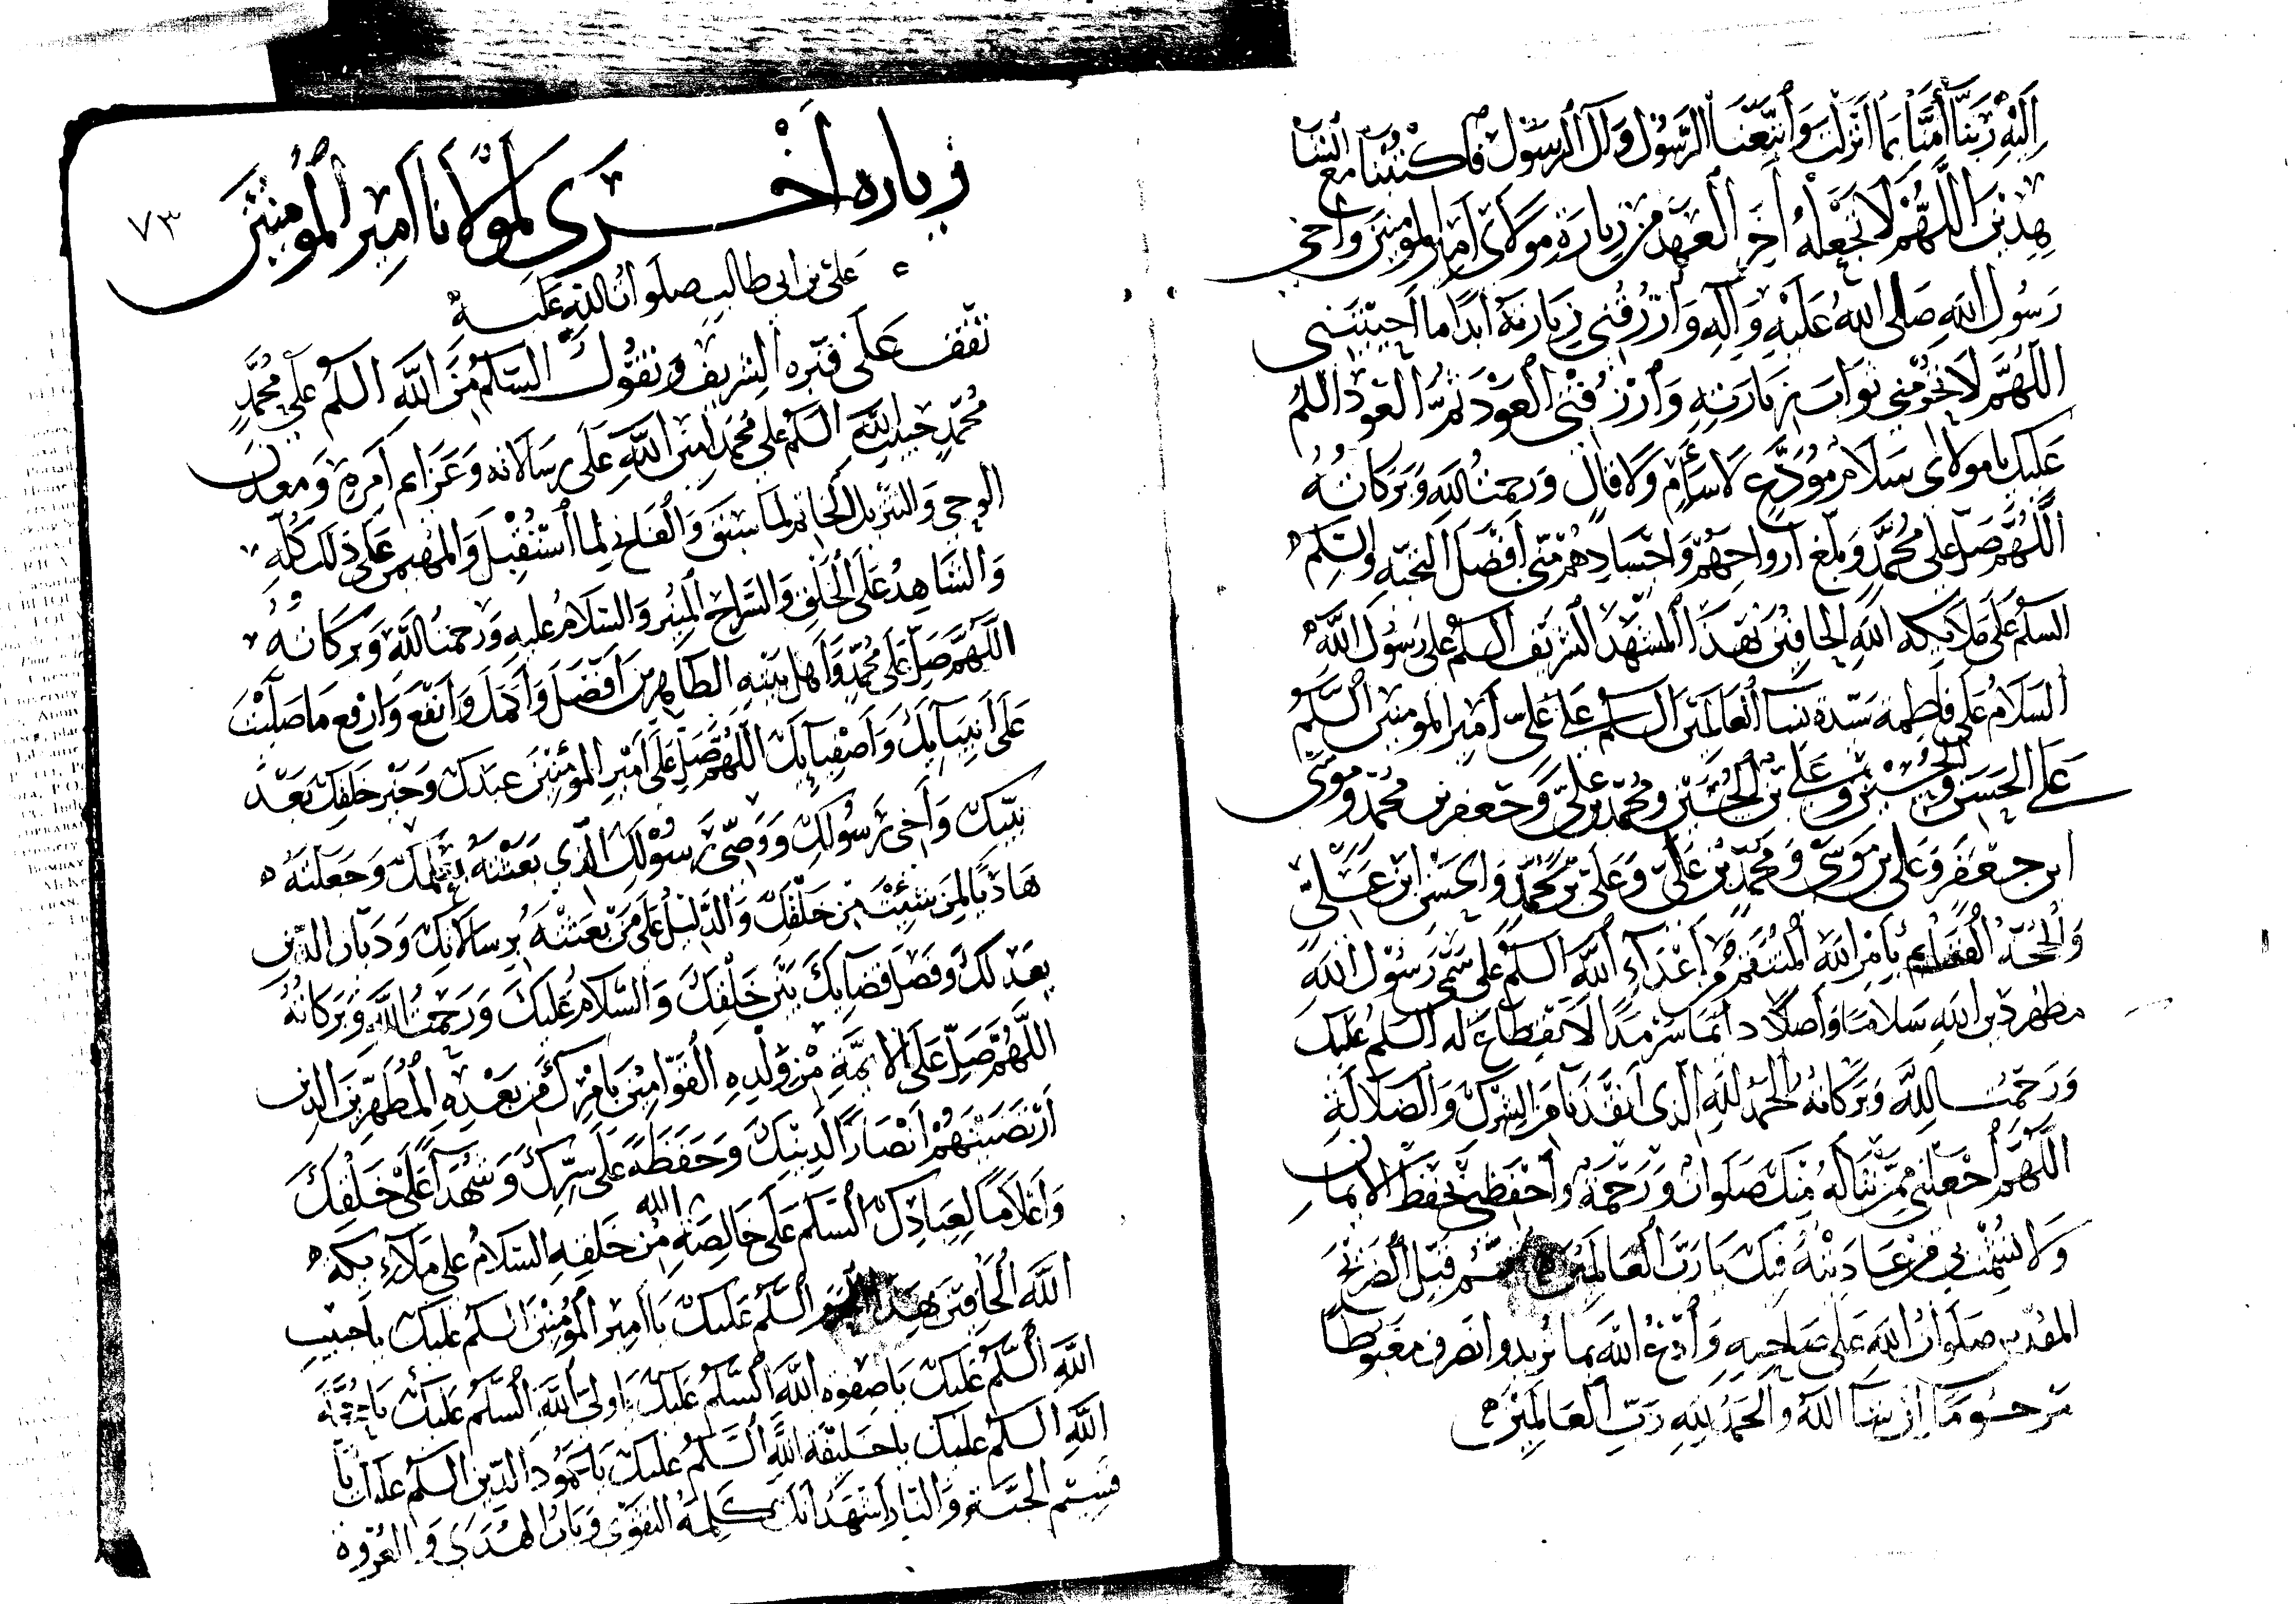 اليه ربنا آمنا بما انزلت واتبعنا الرسول وآل الرسول فاكتبنا مع الشا
هدين اللهم لا تجعله اخر العهد من زيارة مولاي امير المومنين واخي
رسول الله صلى الله عليه وآله وارزقني زيارته ابدا ما احييتني
اللهم لا تحرمني ثواب زيارته وارزقني العود ثم العود السلم
عليك يا مولاي سلام مودع لا سائم ولا قال ورحمت الله وبركاته
اللهم صل على محمد وبلغ ارواحهم واجسادهم مني افضل التحية والسلم
السلم على ملائكه الله الحافين بهذا المشهد الشريف السلم على رسول الله
السلام على فاطمة سيدة نسا العالمين السلم على علي امير المومنين السلم
على الحسن والحسين وعلي بن الحسين ومحمد بن علي وجعفر بن محمد وموسى
ابن جعفر وعلي بن موسى ومحمد بن علي وعلي بن محمد والحسن ابن علي
والحجة القائم بامر الله المنتقم من اعداء الله السلم على سمي رسول الله
مظهر دين الله سلاما واصلا دائما سرمدا لا انقطاع له السلم عليك
ورحمت الله وبركاته الحمد لله الذي انقذنا من الشرك والضلالة
اللهم اجعلني ممن تناله منك صلوات ورحمة واحفظني بحفظ الايمان
ولا تشمت بي من عاديته فيك يا رب العالمين ثم قبل الضريح
المقدس صلوات الله على صاحبه وادع الله بما تريد وانصرف مغبوطا
مرحوما ان شا الله والحمد لله رب العالمين
٧٣
زياره اخرى لمولانا امير المومنين
علي بن ابي طالب صلوات الله عليه
تقف على قبره الشريف وتقول السلم من الله السلم على محمد
محمد حبيب الله السلم على محمد امين الله على رسالاته وعزائم امره ومعدن
الوحي والتنزيل الخاتم لما سبق والفاتح لما استقبل والمهيمن على ذلك كله
والشاهد على الخلق والسراج المنير والسلام عليه ورحمت الله وبركاته
اللهم صل على محمد واهل بيته الطاهرين افضل واكمل وانفع وارفع ما صليت
على انبيآئك واصفيائك اللهم صل على امير المؤمنين عبدك وخير خلقك بعد
نبيك واخي رسولك ووصي رسولك الذي بعثته بعلمك وجعلته
هاديا لمن شئت من خلقك والدليل على من بعثته برسالاتك وديان الدين
بعدلك وفصل قضائك بين خلقك والسلام عليك ورحمت الله وبركاته
اللهم صل على الائمة من ولده القوامين بامرك من بعده المطهرين الذين
ارتضيتهم انصارا لدينك وحفظة على سرك وشهدآ على خلقك
واعلاما لعبادك السلم على خالصة الله من خلقه السلام على ملآئكه
الله الحافين بهذا السلم عليك يا امير المؤمنين السلم عليك يا حبيب
الله السلم عليك يا صفوه الله السلم عليك يا ولي الله السلم عليك يا حجة
الله السلم عليك يا خليفة الله السلم عليك يا عمود الدين السلم عليك يا
قسيم الجنة والنار اشهد انك كلمة التقوى وباب الهدى والعروة